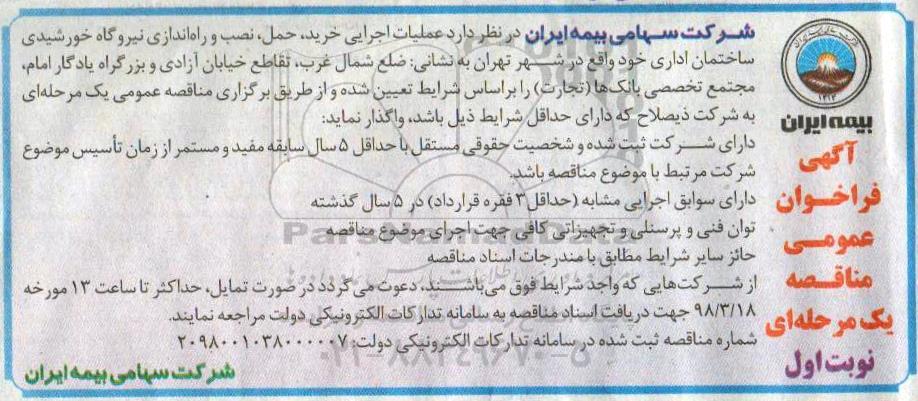 شرکت سهامی بیمه ایران در نظر دارد عملیات اجرایی خرید، حمل، نصب و راه‌اندازی نیروگاه خورشیدی
ساختمان اداری خود واقع در شهر تهران به نشانی: ضلع شمال غرب، تقاطع خیابان آزادی و بزرگراه یادگار امام،
مجتمع تخصصی بانک‌ها (تجارت) را براساس شرایط تعیین شده و از طریق برگزاری مناقصه عمومی یک مرحله‌ای
به شرکت ذیصلاح که دارای حداقل شرایط ذیل باشد، واگذار نماید:
دارای شرکت ثبت شده و شخصیت حقوقی مستقل با حداقل ۵ سال سابقه مفید و مستمر از زمان تأسیس موضوع
شرکت مرتبط با موضوع مناقصه باشد.
دارای سوابق اجرایی مشابه (حداقل ۳ فقره قرارداد) در ۵ سال گذشته
توان فنی و پرسنلی و تجهیزاتی کافی جهت اجرای موضوع مناقصه
حائز سایر شرایط مطابق با مندرجات اسناد مناقصه
از شرکت‌هایی که واجد شرایط فوق می‌باشند، دعوت می‌گردد در صورت تمایل، حداکثر تا ساعت ۱۳ مورخه
۹۸/۳/۱۸ جهت دریافت اسناد مناقصه به سامانه تدارکات الکترونیکی دولت مراجعه نمایند.
شماره مناقصه ثبت شده در سامانه تدارکات الکترونیکی دولت: ۲۰۹۸۰۰۱۰۳۸۰۰۰۰۰۷
شرکت سهامی بیمه ایران
۱۳۱۴
بیمه ایران
آگهی
فراخوان
عمومی
مناقصه
یک مرحله‌ای
نوبت اول
ParsNamadData
۰۲۱-۸۸۳۴۹۶۷۰-۵